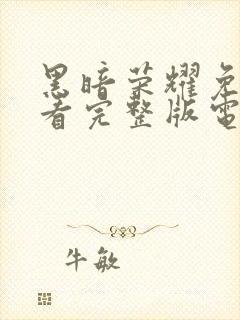 黑暗荣耀免
看完整版電
牛敏